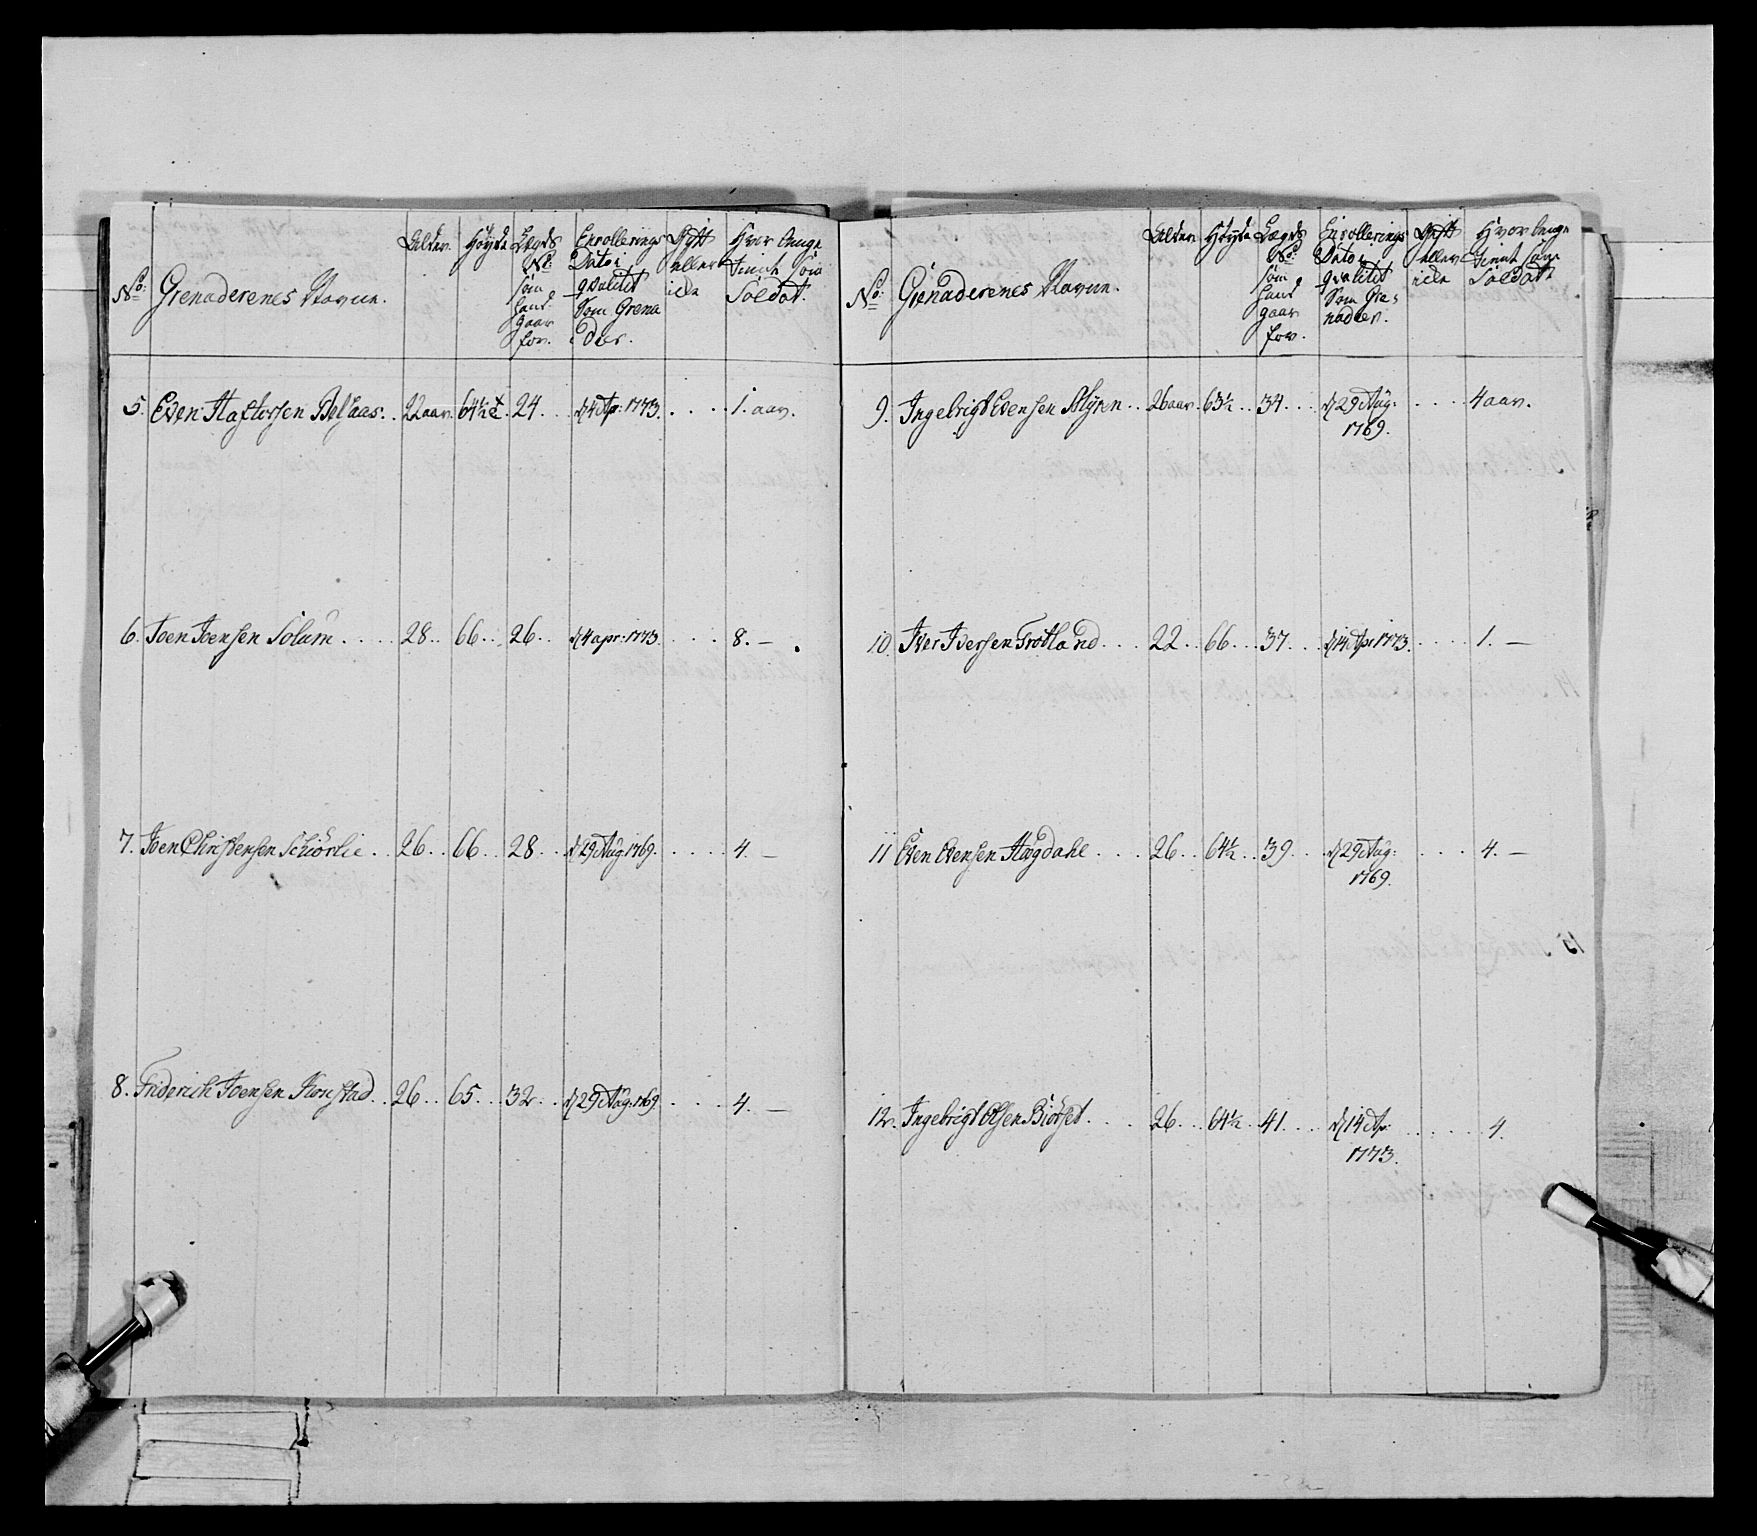 No: Grenaderenes Navne. Alder. Höyde Lægds No: som hand gaar for. Enrollerings Dato i qvalitet Som Grenadeer. Gift eller icke Hvor lenge tient som Soldat.
5. Even Halstorsen Belsaas. 22 aar. 64½ 24. d 4 Ap: 1773. 1. aar.
6. Joen Joensen Solum. 28. 66. 26. d 4 apr: 1773. 8. —
7. Joen Christensen Schiörlie. 26. 66. 28. d 29 Aug. 1769. 4. —
8. Friderich Joensen Konstad. 26. 65. 32. d 29 Aug: 1769. 4. —
No: Grenaderenes Navne. Alder. Höyde Lægds No: som hand gaar for. Enrollerings Dato i qvalitet Som Grenadeer. Gift eller icke Hvor lenge tient som Soldat.
9. Ingebrigt Evensen Myren. 26 aar. 63½. 34. d 29 Aug:
1769. 4 aar.
10. Iver Iversen Trotland. 22. 66. 37. d 14 Apr 1773. 1. —
11 Even Evensen Hægdahl. 26. 64½. 39. d 29 Aug:
1769. 4. —
12. Ingebrigt Olsen Biörset. 26. 64½. 41. d 14 Ap:
1773. 4.